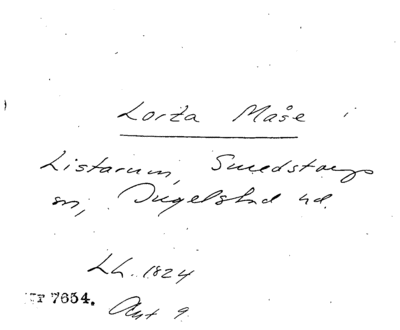 Lorta Måse i
Listarum, Smedstorps
sn, Ingelstad hd.
Lh. 1824
7654. Akt 9